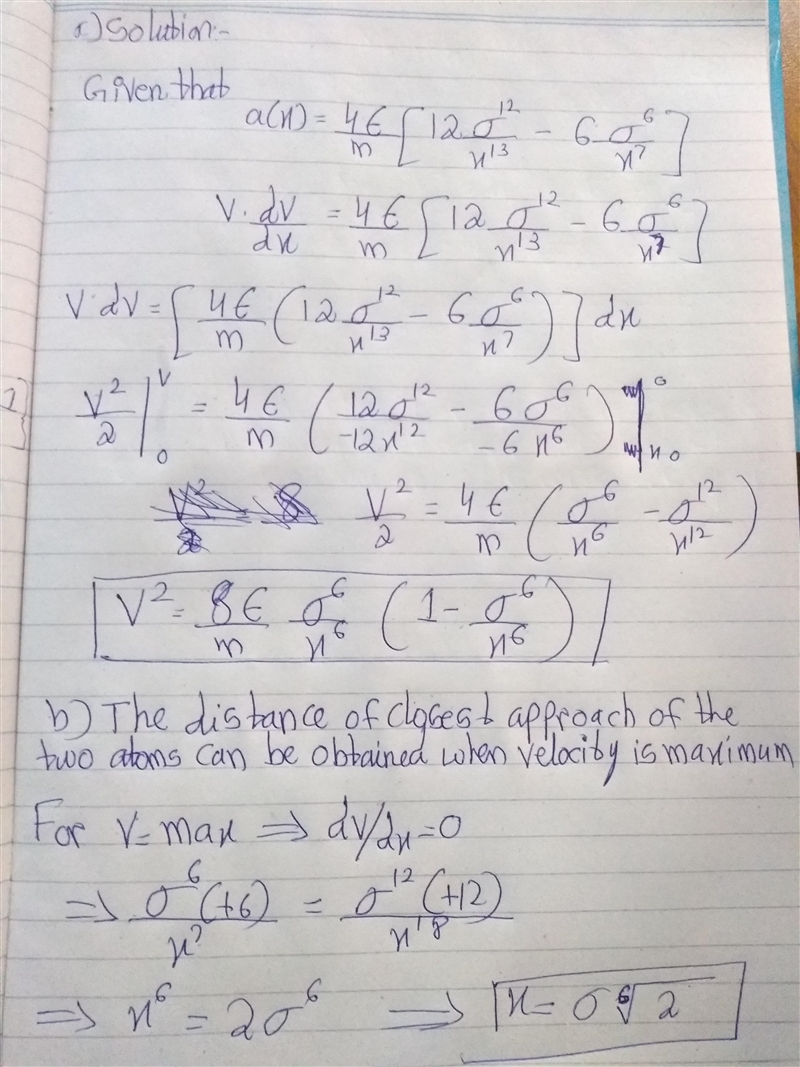 a) Solution:-
Given that
a(x) = 4ϵ/m [ 12 σ^12/x^13 - 6 σ^6/x^7 ]
V. dV/dx = 4ϵ/m [ 12 σ^12/x^13 - 6 σ^6/x^7 ]
V dV = [ 4ϵ/m ( 12 σ^12/x^13 - 6 σ^6/x^7 ) ] dx
V^2/2 |_0^V = 4ϵ/m ( 12 σ^12/-12x^12 - 6 σ^6/-6 x^6 ) |_x0^0
V^2/2 = 4ϵ/m ( σ^6/x^6 - σ^12/x^12 )
V^2 = 8ϵ/m σ^6/x^6 ( 1 - σ^6/x^6 )
b) The distance of closest approach of the
two atoms can be obtained when velocity is maximum
For V = max ⇒ dV/dx = 0
⇒ σ^6 (+6)/x^7 = σ^12 (+12)/x^18
⇒ x^6 = 2σ^6 ⇒ x = σ ⁶√2